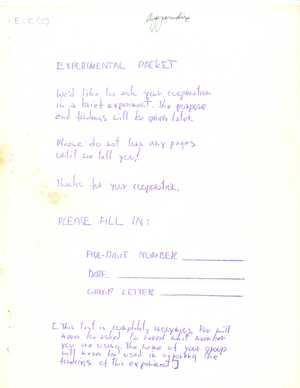 Appendix
EXPERIMENTAL PACKET
We'd like to ask your cooperation
in a brief experiment. The purpose
and findings will be given later.
Please do not turn any pages
until we tell you!
Thanks for your cooperation.
PLEASE FILL IN:
FIVE-DIGIT NUMBER
DATE
GROUP LETTER
[This test is completely anonymous. You will
be asked to what number
you are using. The name of your group
will be used in reporting the
findings of this experiment.]